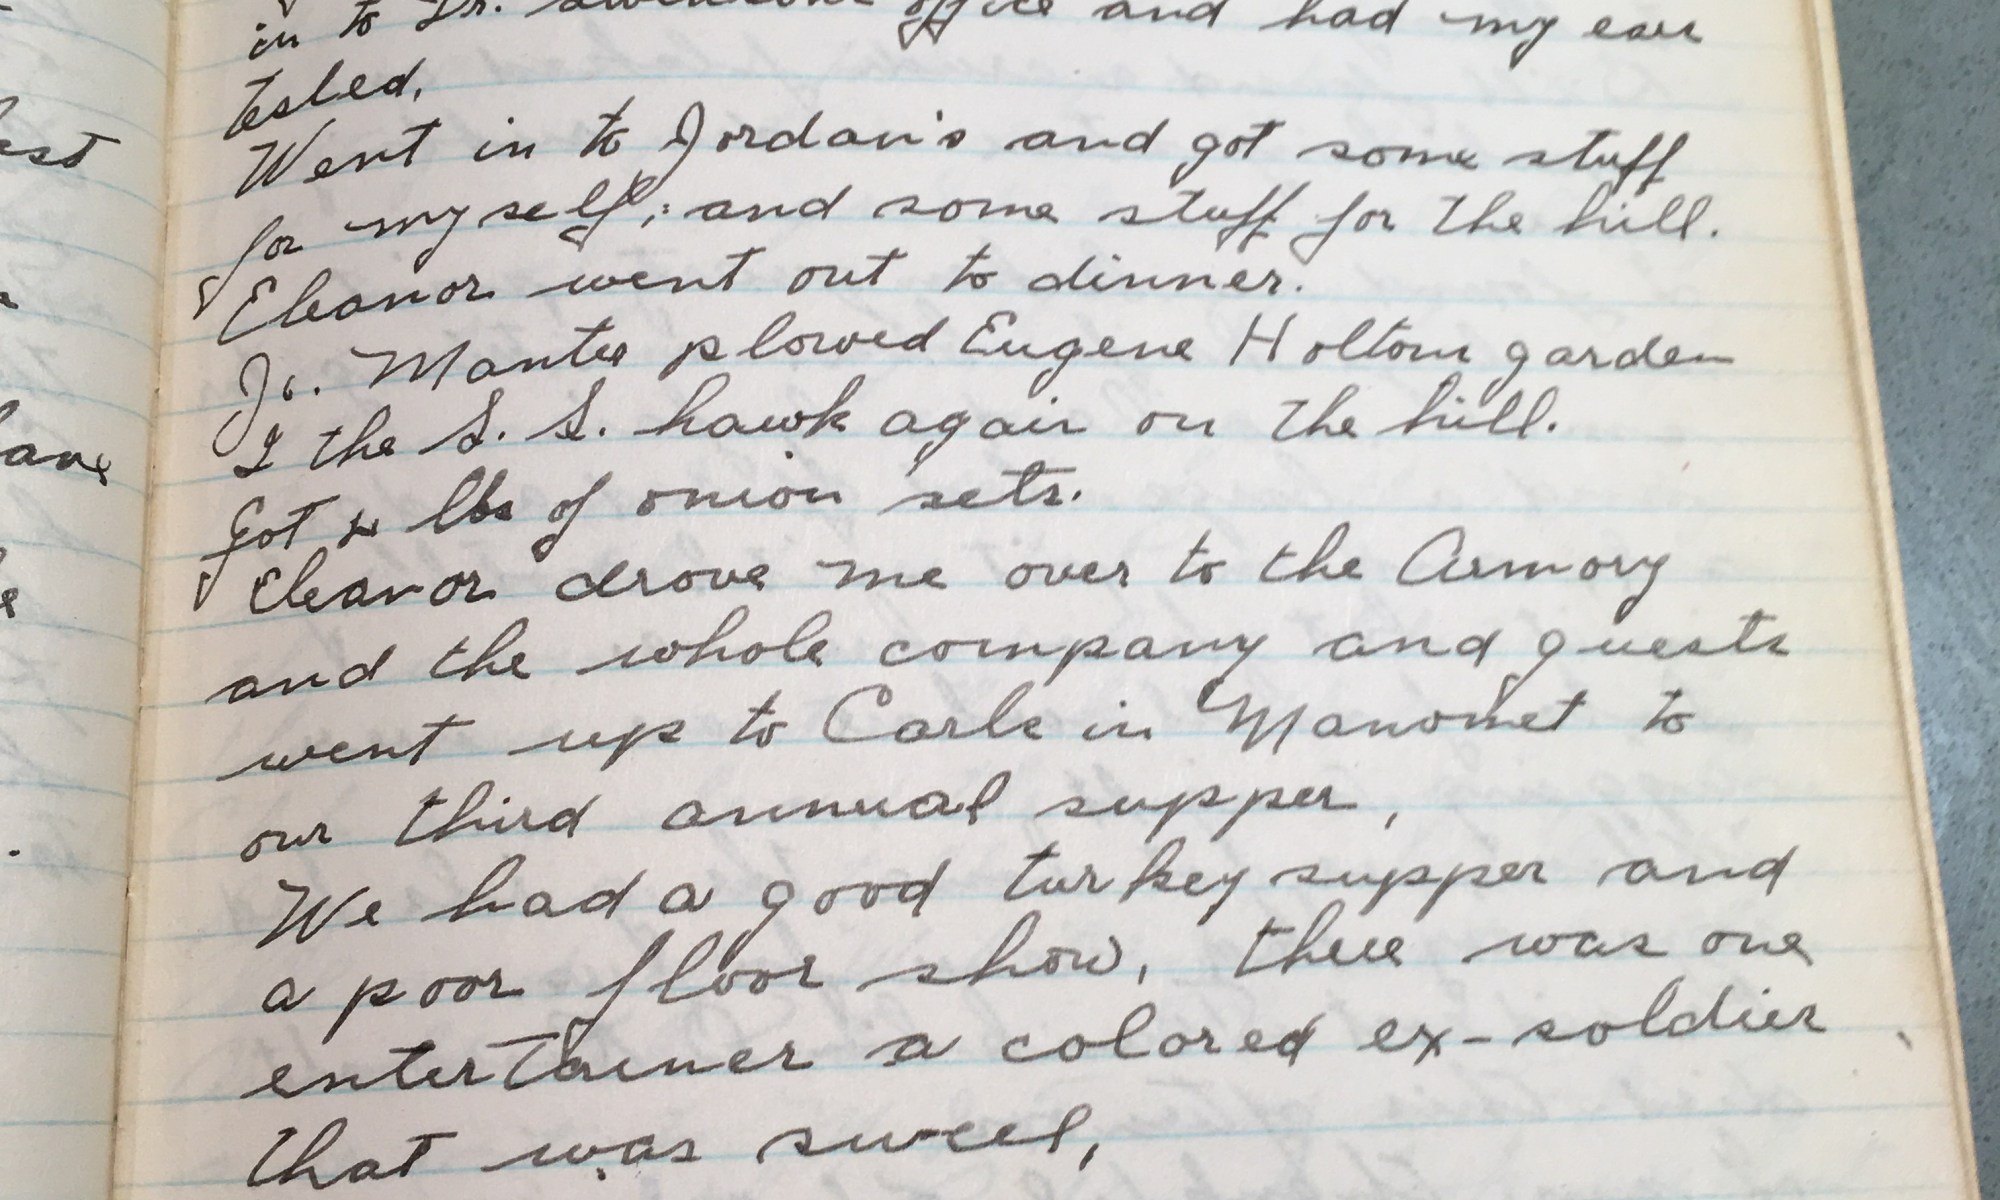 in to Dr. office and had my ears
tested,
Went in to Jordan's and got some stuff
for myself; and some stuff for the hill.
Eleanor went out to dinner.
Jr. Manter plowed Eugene Holtom garden
I the S. S. hawk again on the hill.
Got lbs of onion sets.
Eleanor drove me over to the Armory
and the whole company and guests
went up to Carls in Manomet to
our third annual supper,
We had a good turkey supper and
a poor floor show, there was one
entertainer a colored ex-soldier
that was swell,